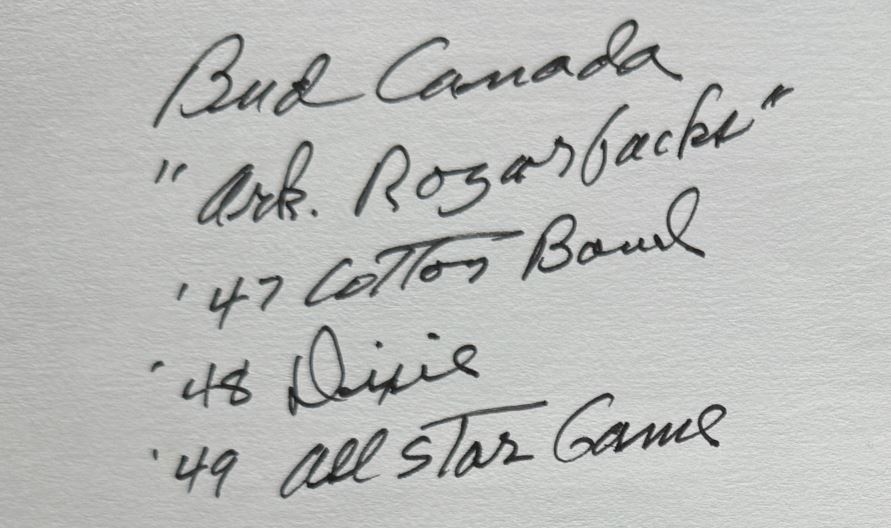 Bud Canada
"Ark. Rozarbacks"
'47 Cotton Bowl
'48 Dixie
'49 All Star Game